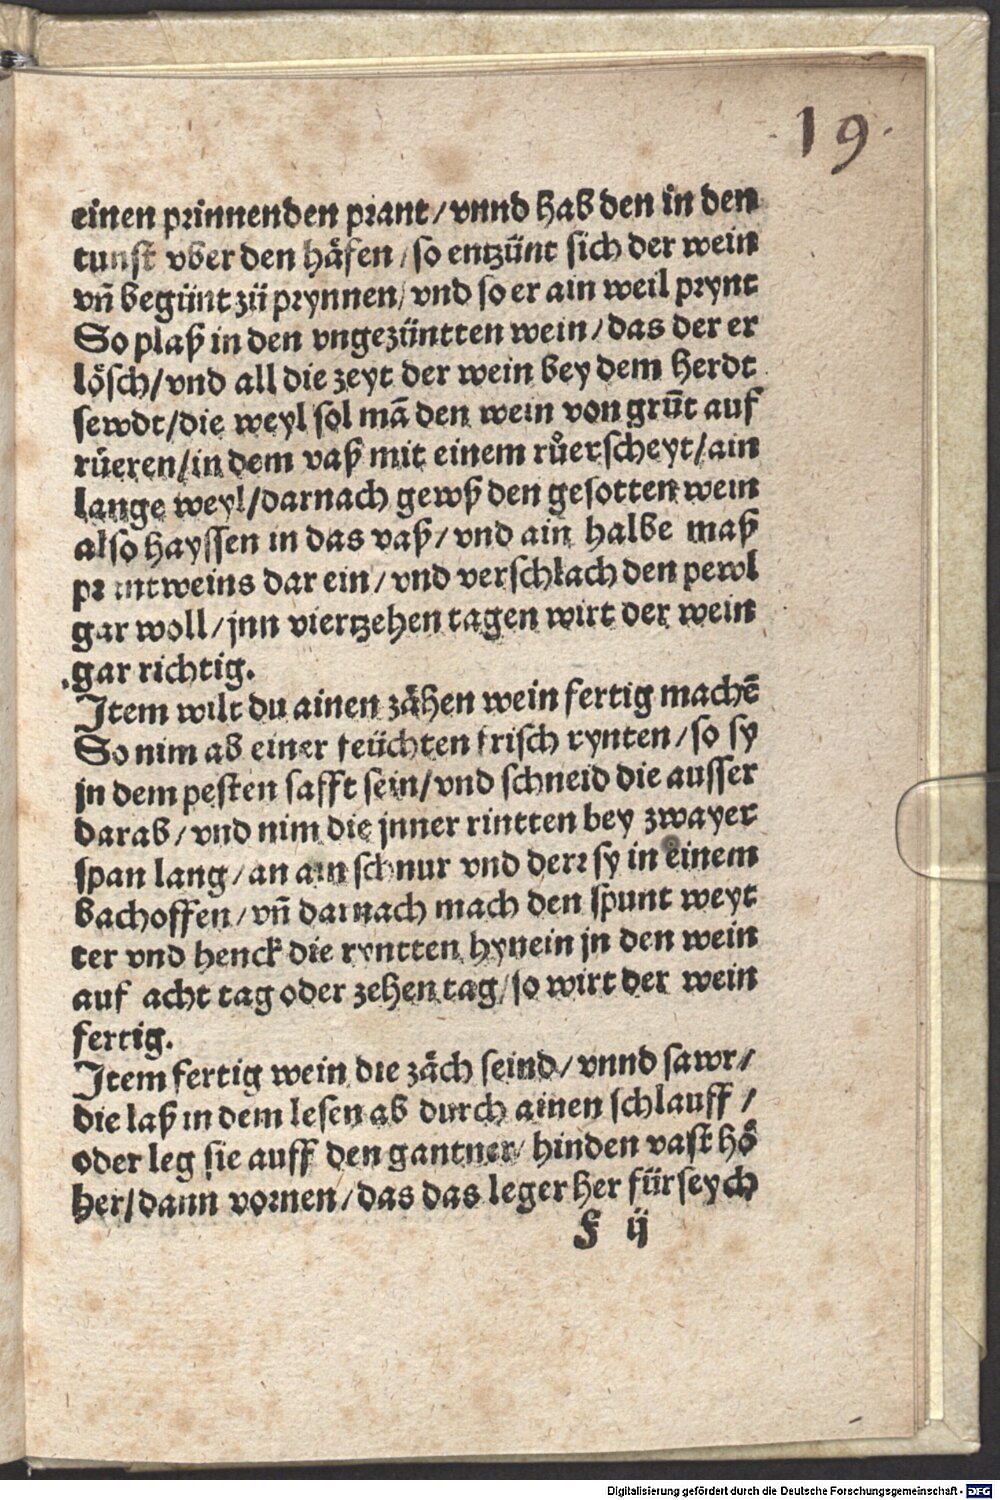 19.
einen prinnenden prant/vnnd hab den in den
tunst vber den häfen/so entzünt sich der wein
vñ begünt zü prynnen/vnd so er ain weil prynt
So plaß in den vngezüntten wein/das der er
lösch/vnd all die zeyt der wein bey dem herdt
sewdt/die weyl sol mā den wein von grūt auf
rüeren/in dem vaß mit einem růerscheyt/ain
lange weyl/darnach gewß den gesotten wein
also hayssen in das vaß/vnd ain halbe maß
prantweins dar ein/vnd verschlach den pewl
gar woll/jnn viertzehen tagen wirt der wein
gar richtig.
Item wilt du ainen zähen wein fertig machē
So nim ab einer feüchten frisch rynten/so sy
jn dem pesten safft sein/vnd schneid die ausser
darab/vnd nim die jnner rintten bey zwayer
span lang/an ain schnur vnd derr sy in einem
bachoffen/vñ darnach mach den spunt weyt
ter vnd henck die ryntten hynein jn den wein
auf acht tag oder zehen tag/so wirt der wein
fertig.
Item fertig wein die zäch seind/vnnd sawr/
die laß in dem lesen ab durch ainen schlauff/
oder leg sie auff den gantner/hinden vast hö
her/dann vornen/das das leger her für seych
F ij
Digitalisierung gefördert durch die Deutsche Forschungsgemeinschaft - DFG